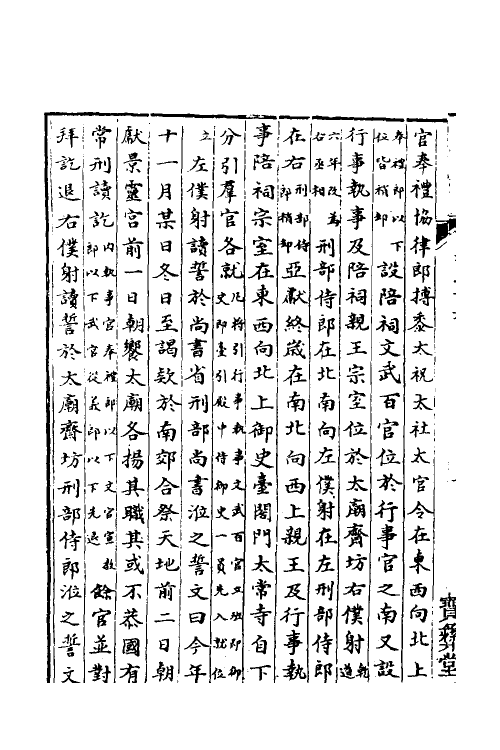 官奉禮協律郎搏黍太祝太社太官令在東西向北上
奉禮郎以下位皆稍却設陪祠文武百官位於行事官之南又設
行事執事及陪祠親王宗室位於太廟齋坊右僕射乾道
六年改為右丞相刑部侍郎在北南向左僕射在左刑部侍郎
在右刑部侍郎稍却亞獻終獻在南北向西上親王及行事執
事陪祠宗室在東西向北上御史臺閤門太常寺自下
分引羣官各就凡將引行事執事文武百官文班即御史即臺引殿中侍御史一員先入就位
立左僕射讀誓於尚書省刑部尚書涖之誓文曰今年
十一月某日冬日至謁欵於南郊合祭天地前二日朝
獻景靈宮前一日朝饗太廟各揚其職其或不恭國有
常刑讀訖內執事官奉禮郎以下文官宣教郎以下武官從義郎以下先退餘官並對
拜訖退右僕射讀誓於太廟齋坊刑部侍郎涖之誓文
寶彝堂